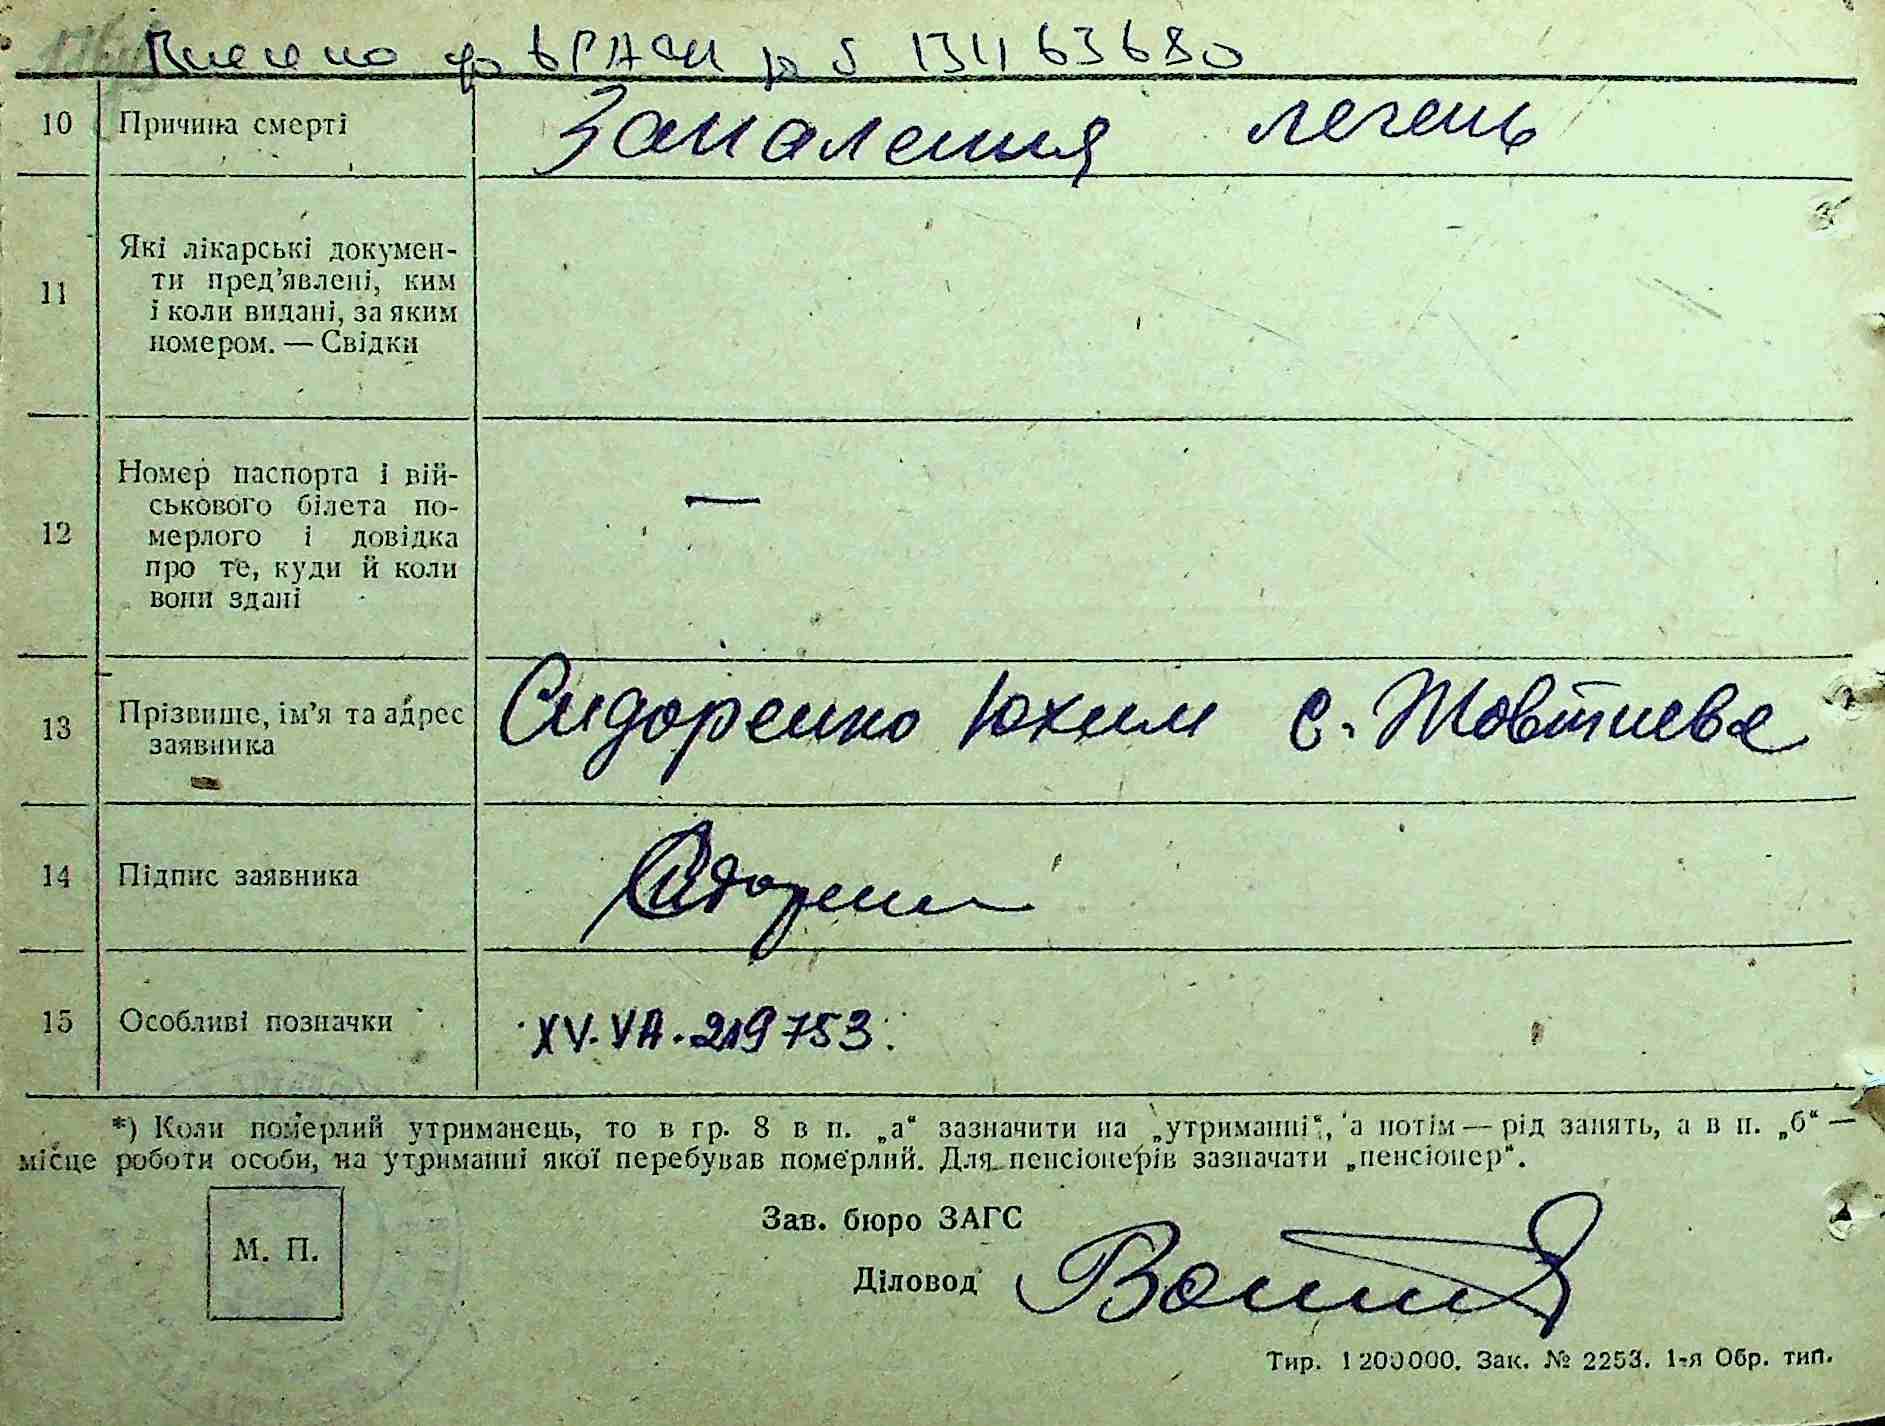 Внесено до ДРАЦС р № 131163680
10 Причина смерті Запалення легень
11 Які лікарські докумен-
ти пред’явлені, ким
і коли видані, за яким
номером. — Свідки
12 Номер паспорта і вій-
ськового білета по-
мерлого і довідка
про те, куди й коли
вони здані —
13 Прізвище, ім’я та адрес
заявника Сидоренко Юхим с. Жовтнева
14 Підпис заявника
15 Особливі позначки XV-УА.219753.
*) Коли померлий утриманець, то в гр. 8 в п. „а“ зазначити на „утриманні“, а потім — рід занять, а в п. „б“ —
місце роботи особи, на утриманні якої перебував померлий. Для пенсіонерів зазначати „пенсіонер“.
Зав. бюро ЗАГС
М. П.
Діловод
Тир. 1200000. Зак. № 2253. 1-я Обр. тип.